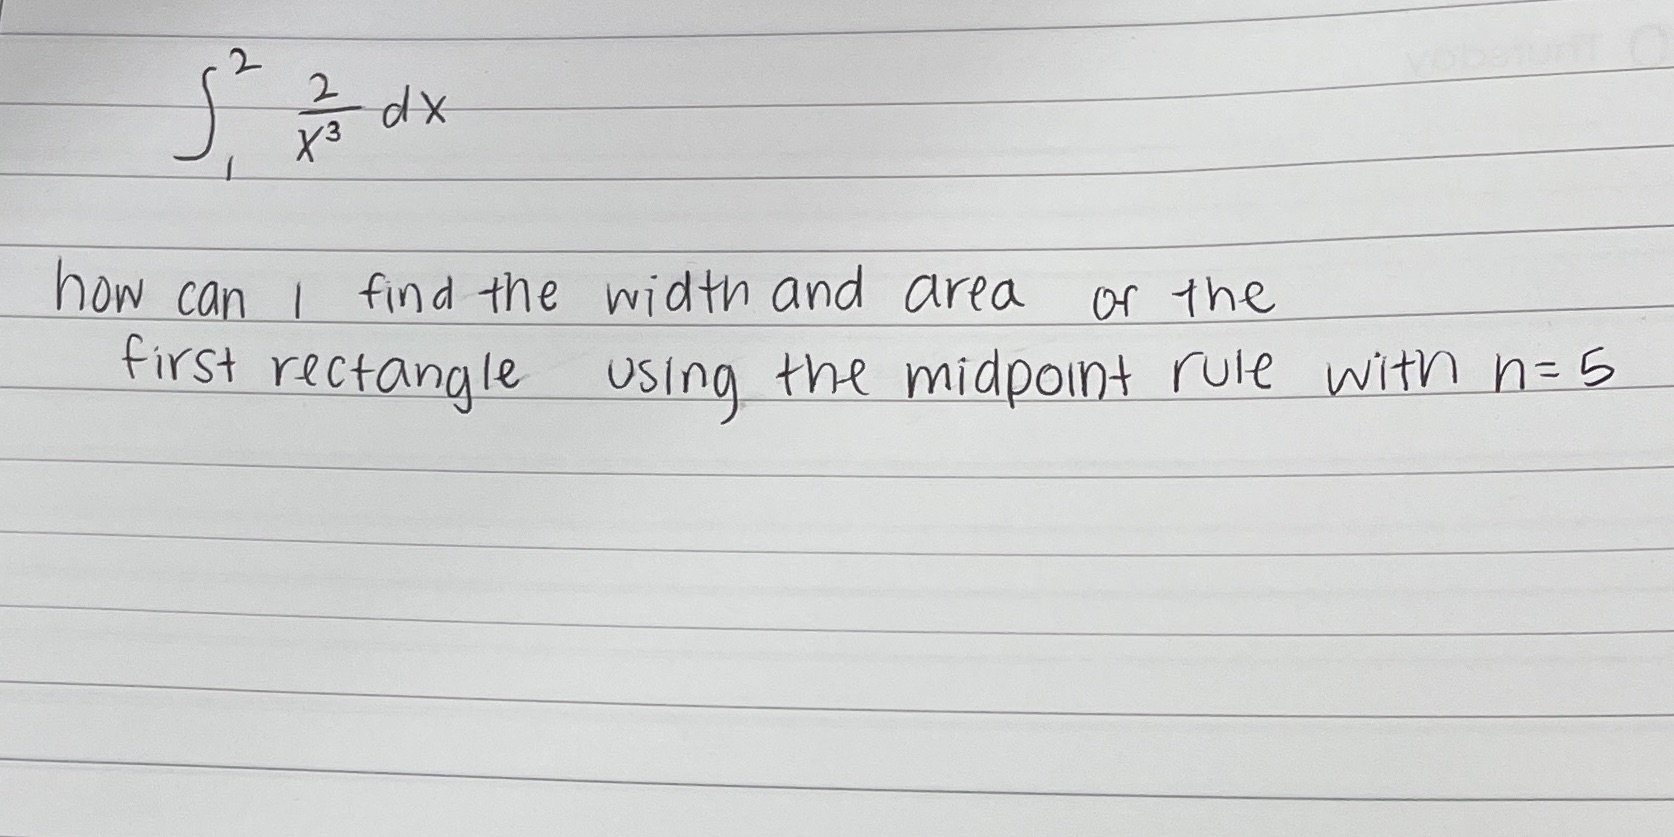 ∫₁² 2/x³ dx
how can I find the width and area of the
first rectangle using the midpoint rule with n = 5